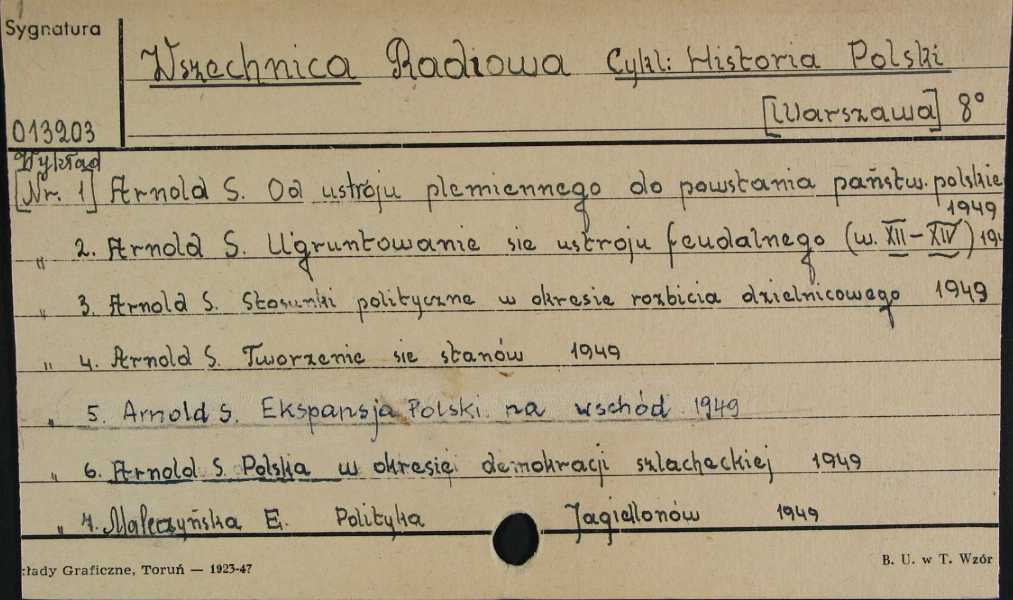 Sygnatura
Wszechnica Radiowa Cykl: Historia Polski
[Warszawa] 8°
013203
Wykład
[Nr. 1] Arnold S. Od ustroju plemiennego do powstania państw. polskie
1949
" 2. Arnold S. Ugruntowanie sie ustroju feudalnego (w. XII-XIV) 194
" 3. Arnold S. Stosunki polityczne w okresie rozbicia dzielnicowego 1949
" 4. Arnold S. Tworzenie sie stanów 1949
" 5. Arnold S. Ekspansja Polski na wschód 1949
" 6. Arnold S. Polska w okresie demokracji szlacheckiej 1949
" 7. Maleczyńska E. Polityka Jagiellonów 1949
kłady Graficzne, Toruń — 1923-47
B. U. w T. Wzór